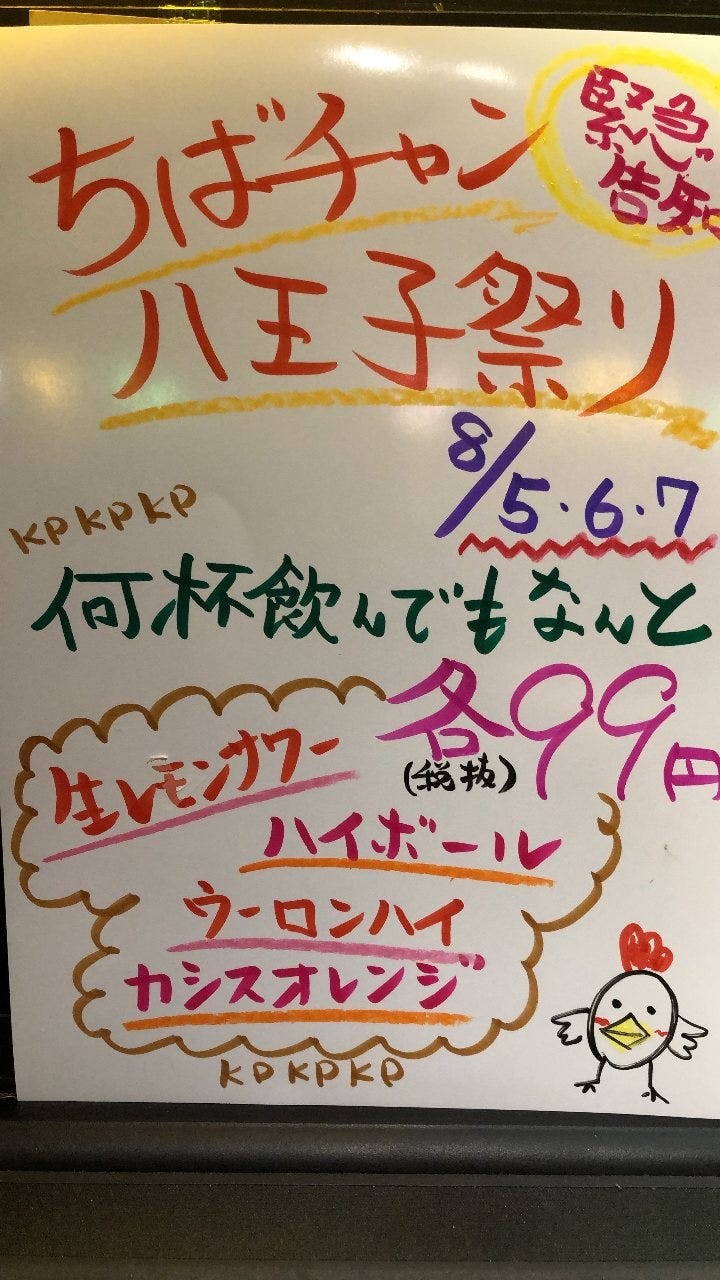 緊急
告知
ちばチャン
八王子祭り
8/5・6・7
KPKPKP
何杯飲んでもなんと
各99円
(税抜)
生レモンサワー
ハイボール
ウーロンハイ
カシスオレンジ
KPKPKP